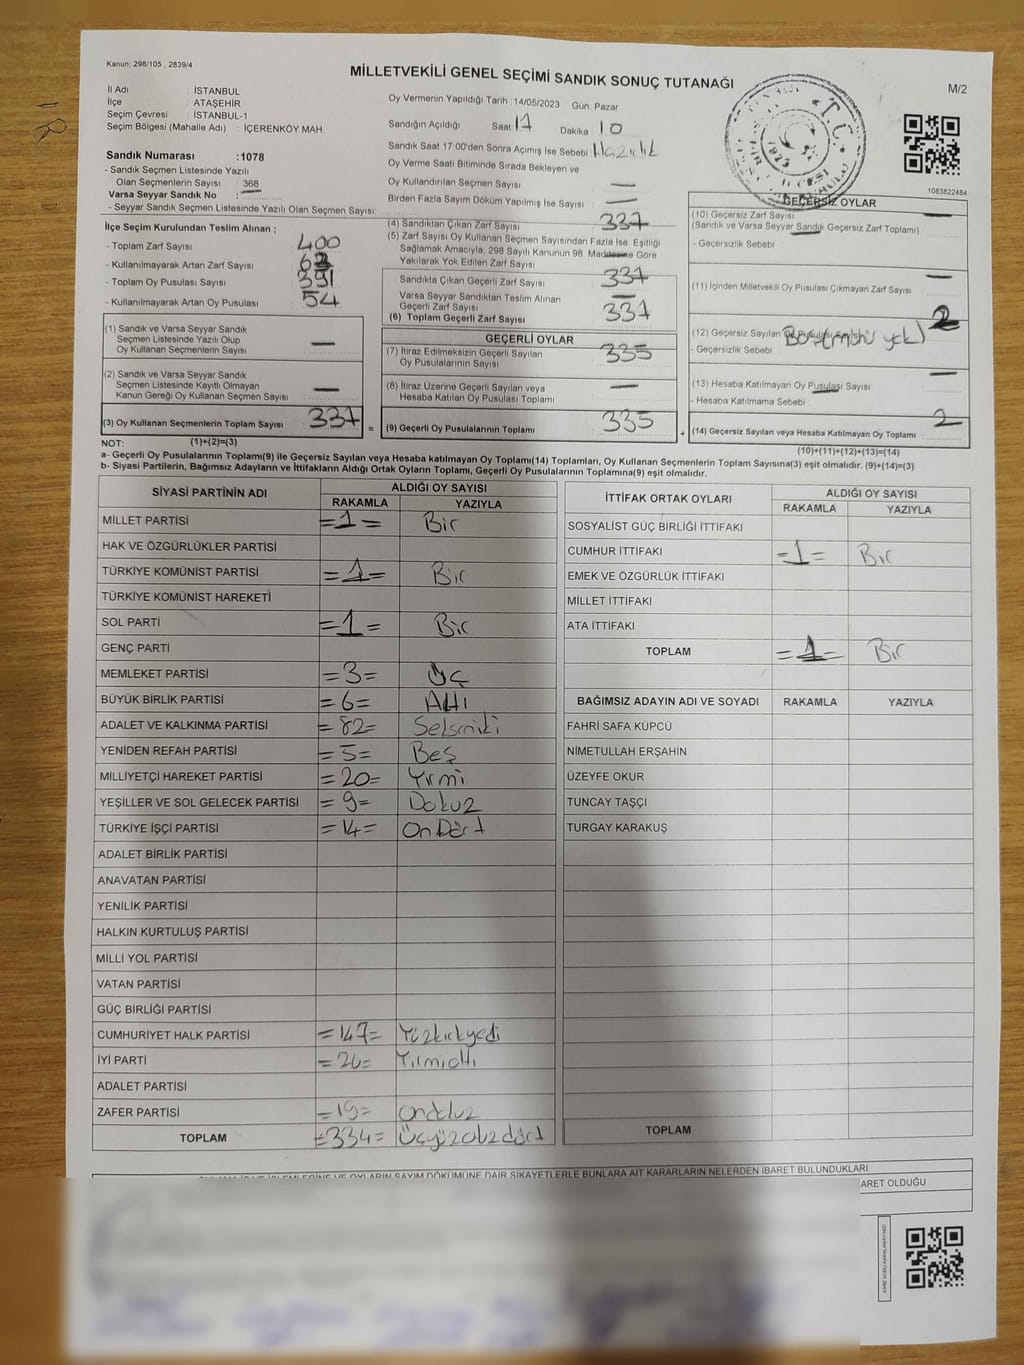 Kanun; 298/105 , 2839/4
MİLLETVEKİLİ GENEL SEÇİMİ SANDIK SONUÇ TUTANAĞI
M/2
İl Adı : İSTANBUL
İlçe : ATAŞEHİR
Seçim Çevresi : İSTANBUL-1
Seçim Bölgesi (Mahalle Adı) : İÇERENKÖY MAH.
Oy Vermenin Yapıldığı Tarih : 14/05/2023 Gün: Pazar
Sandığın Açıldığı Saat 17 Dakika 10
Sandık Saat 17.00'den Sonra Açımış İse Sebebi Hazırlık
Oy Verme Saati Bitiminde Sırada Bekleyen ve
Oy Kullandırılan Seçmen Sayısı —
Birden Fazla Sayım Döküm Yapılmış İse Sayısı : —
1083822484
Sandık Numarası :1078
- Sandık Seçmen Listesinde Yazılı
Olan Seçmenlerin Sayısı : 368
Varsa Seyyar Sandık No : —
- Seyyar Sandık Seçmen Listesinde Yazılı Olan Seçmen Sayısı:
İlçe Seçim Kurulundan Teslim Alınan ;
- Toplam Zarf Sayısı : 400
- Kullanılmayarak Artan Zarf Sayısı :
- Toplam Oy Pusulası Sayısı : 391
- Kullanılmayarak Artan Oy Pusulası : 54
(1) Sandık ve Varsa Seyyar Sandık
Seçmen Listesinde Yazılı Olup
Oy Kullanan Seçmenlerin Sayısı —
(2) Sandık ve Varsa Seyyar Sandık
Seçmen Listesinde Kayıtlı Olmayan
Kanun Gereği Oy Kullanan Seçmen Sayısı —
(3) Oy Kullanan Seçmenlerin Toplam Sayısı 337
(4) Sandıktan Çıkan Zarf Sayısı 337
(5) Zarf Sayısı Oy Kullanan Seçmen Sayısından Fazla İse, Eşitliği
Sağlamak Amacıyla, 298 Sayılı Kanunun 98. Maddesine Göre
Yakılarak Yok Edilen Zarf Sayısı —
Sandıkta Çıkan Geçerli Zarf Sayısı 337
Varsa Seyyar Sandıktan Teslim Alınan
Geçerli Zarf Sayısı —
(6) Toplam Geçerli Zarf Sayısı 337
GEÇERLİ OYLAR
(7) İtiraz Edilmeksizin Geçerli Sayılan
Oy Pusulalarının Sayısı 335
(8) İtiraz Üzerine Geçerli Sayılan veya
Hesaba Katılan Oy Pusulası Toplamı —
= (9) Geçerli Oy Pusulalarının Toplamı 335
GEÇERSİZ OYLAR
(10) Geçersiz Zarf Sayısı —
(Sandık ve Varsa Seyyar Sandık Geçersiz Zarf Toplamı)
- Geçersizlik Sebebi : —
(11) İçinden Milletvekili Oy Pusulası Çıkmayan Zarf Sayısı —
(12) Geçersiz Sayılan Oy Pusulası Sayısı 2
- Geçersizlik Sebebi : Boş(mühü yok)
(13) Hesaba Katılmayan Oy Pusulası Sayısı —
- Hesaba Katılmama Sebebi : —
+ (14) Geçersiz Sayılan veya Hesaba Katılmayan Oy Toplamı 2
NOT: (1)+(2)=(3)
(10)+(11)+(12)+(13)=(14)
a- Geçerli Oy Pusulalarının Toplamı(9) ile Geçersiz Sayılan veya Hesaba katılmayan Oy Toplamı(14) Toplamları, Oy Kullanan Seçmenlerin Toplam Sayısına(3) eşit olmalıdır. (9)+(14)=(3)
b- Siyasi Partilerin, Bağımsız Adayların ve İttifakların Aldığı Ortak Oyların Toplamı, Geçerli Oy Pusulalarının Toplamına(9) eşit olmalıdır.
SİYASİ PARTİNİN ADI ALDIĞI OY SAYISI
RAKAMLA YAZIYLA
MİLLET PARTİSİ =1= Bir
HAK VE ÖZGÜRLÜKLER PARTİSİ
TÜRKİYE KOMÜNİST PARTİSİ =1= Bir
TÜRKİYE KOMÜNİST HAREKETİ
SOL PARTİ =1= Bir
GENÇ PARTİ
MEMLEKET PARTİSİ =3= Üç
BÜYÜK BİRLİK PARTİSİ =6= Altı
ADALET VE KALKINMA PARTİSİ =82= Seksniki
YENİDEN REFAH PARTİSİ =5= Beş
MİLLİYETÇİ HAREKET PARTİSİ =20= Yirmi
YEŞİLLER VE SOL GELECEK PARTİSİ =9= Dokuz
TÜRKİYE İŞÇİ PARTİSİ =14= On Dört
ADALET BİRLİK PARTİSİ
ANAVATAN PARTİSİ
YENİLİK PARTİSİ
HALKIN KURTULUŞ PARTİSİ
MİLLİ YOL PARTİSİ
VATAN PARTİSİ
GÜÇ BİRLİĞİ PARTİSİ
CUMHURİYET HALK PARTİSİ =147= Yüzkırkyedi
İYİ PARTİ =26= Yirmialtı
ADALET PARTİSİ
ZAFER PARTİSİ =19= ondokuz
TOPLAM =334= Üçyüzotuzdört
İTTİFAK ORTAK OYLARI ALDIĞI OY SAYISI
RAKAMLA YAZIYLA
SOSYALİST GÜÇ BİRLİĞİ İTTİFAKI
CUMHUR İTTİFAKI =1= Bir
EMEK VE ÖZGÜRLÜK İTTİFAKI
MİLLET İTTİFAKI
ATA İTTİFAKI
TOPLAM =1= Bir
BAĞIMSIZ ADAYIN ADI VE SOYADI RAKAMLA YAZIYLA
FAHRİ SAFA KÜPCÜ
NİMETULLAH ERŞAHİN
ÜZEYFE OKUR
TUNCAY TAŞÇI
TURGAY KARAKUŞ
TOPLAM
OYLARIN SAYIM DÖKÜMÜNE DAİR ŞİKAYETLERLE BUNLARA AİT KARARLARIN NELERDEN İBARET BULUNDUKLARI
ARET OLDUĞU